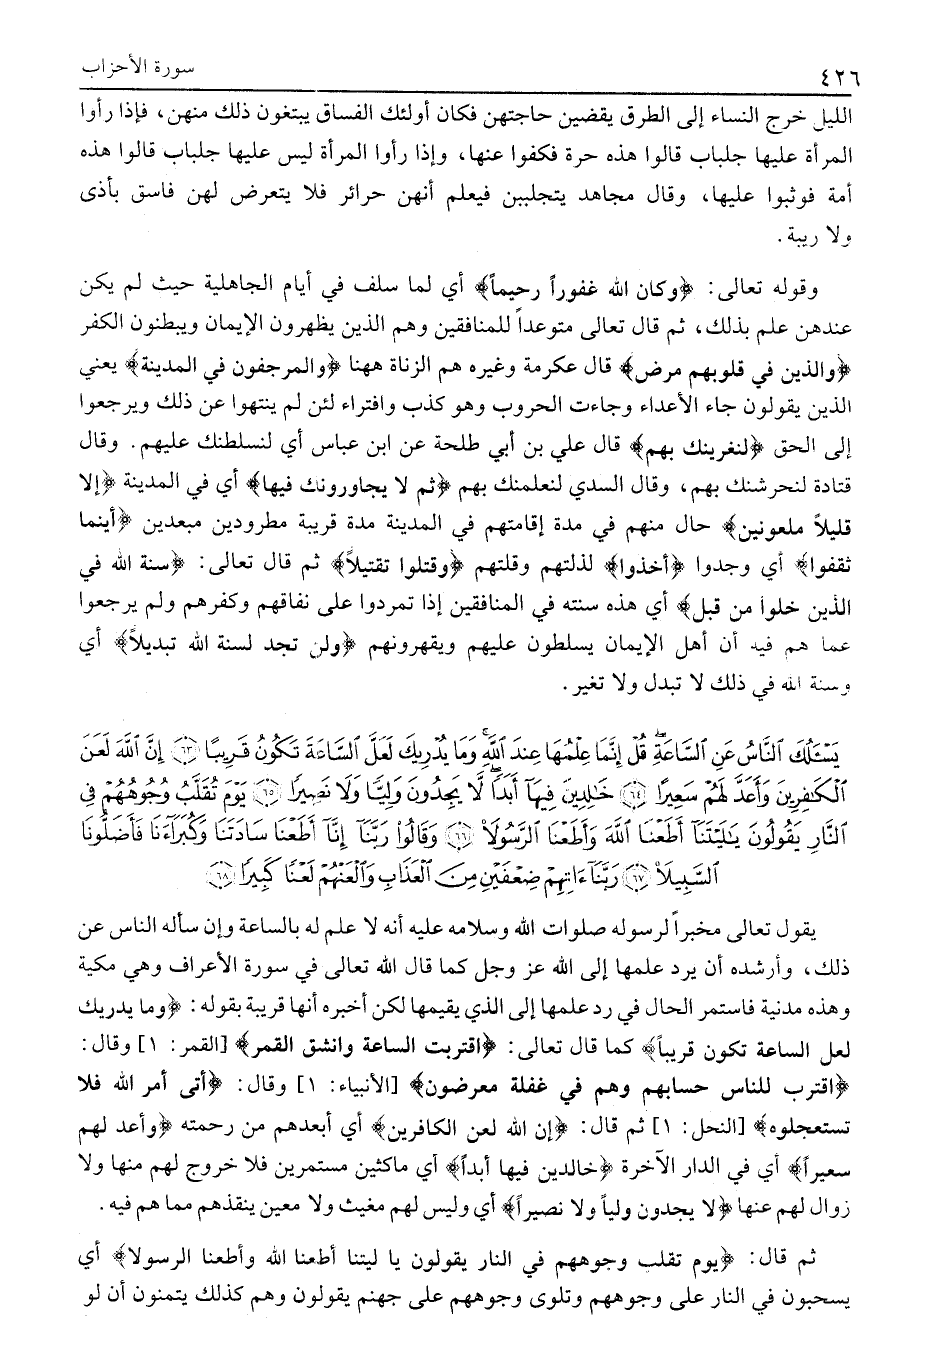 ٤٢٦ سورة الأحزاب
الليل خرج النساء إلى الطرق يقضين حاجتهن فكان أولئك الفساق يبتغون ذلك منهن، فإذا رأوا
المرأة عليها جلباب قالوا هذه حرة فكفوا عنها، وإذا رأوا المرأة ليس عليها جلباب قالوا هذه
أمة فوثبوا عليها، وقال مجاهد يتجلببن فيعلم أنهن حرائر فلا يتعرض لهن فاسق بأذى
ولا ريبة.
وقوله تعالى: ﴿وكان الله غفوراً رحيماً﴾ أي لما سلف في أيام الجاهلية حيث لم يكن
عندهن علم بذلك، ثم قال تعالى متوعداً للمنافقين وهم الذين يظهرون الإيمان ويبطنون الكفر
﴿والذين في قلوبهم مرض﴾ قال عكرمة وغيره هم الزناة ههنا ﴿والمرجفون في المدينة﴾ يعني
الذين يقولون جاء الأعداء وجاءت الحروب وهو كذب وافتراء لئن لم ينتهوا عن ذلك ويرجعوا
إلى الحق ﴿لنغرينك بهم﴾ قال علي بن أبي طلحة عن ابن عباس أي لنسلطنك عليهم. وقال
قتادة لنحرشنك بهم، وقال السدي لنعلمنك بهم ﴿ثم لا يجاورونك فيها﴾ أي في المدينة ﴿إلا
قليلاً ملعونين﴾ حال منهم في مدة إقامتهم في المدينة مدة قريبة مطرودين مبعدين ﴿أينما
ثقفوا﴾ أي وجدوا ﴿أخذوا﴾ لذلتهم وقلتهم ﴿وقتلوا تقتيلاً﴾ ثم قال تعالى: ﴿سنة الله في
الذين خلوا من قبل﴾ أي هذه سنته في المنافقين إذا تمردوا على نفاقهم وكفرهم ولم يرجعوا
عما هم فيه أن أهل الإيمان يسلطون عليهم ويقهرونهم ﴿ولن تجد لسنة الله تبديلاً﴾ أي
وسنة الله في ذلك لا تبدل ولا تغير.
يَسْـَٔلُكَ ٱلنَّاسُ عَنِ ٱلسَّاعَةِۖ قُلْ إِنَّمَا عِلْمُهَا عِندَ ٱللَّهِۚ وَمَا يُدْرِيكَ لَعَلَّ ٱلسَّاعَةَ تَكُونُ قَرِيبًا ٦٣ إِنَّ ٱللَّهَ لَعَنَ
ٱلْكَٰفِرِينَ وَأَعَدَّ لَهُمْ سَعِيرًا ٦٤ خَٰلِدِينَ فِيهَآ أَبَدًاۖ لَّا يَجِدُونَ وَلِيًّا وَلَا نَصِيرًا ٦٥ يَوْمَ تُقَلَّبُ وُجُوهُهُمْ فِى
ٱلنَّارِ يَقُولُونَ يَٰلَيْتَنَآ أَطَعْنَا ٱللَّهَ وَأَطَعْنَا ٱلرَّسُولَا۠ ٦٦ وَقَالُوا۟ رَبَّنَآ إِنَّآ أَطَعْنَا سَادَتَنَا وَكُبَرَآءَنَا فَأَضَلُّونَا
ٱلسَّبِيلَا۠ ٦٧ رَبَّنَآ ءَاتِهِمْ ضِعْفَيْنِ مِنَ ٱلْعَذَابِ وَٱلْعَنْهُمْ لَعْنًا كَبِيرًا ٦٨
يقول تعالى مخبراً لرسوله صلوات الله وسلامه عليه أنه لا علم له بالساعة وإن سأله الناس عن
ذلك، وأرشده أن يرد علمها إلى الله عز وجل كما قال الله تعالى في سورة الأعراف وهي مكية
وهذه مدنية فاستمر الحال في رد علمها إلى الذي يقيمها لكن أخبره أنها قريبة بقوله: ﴿وما يدريك
لعل الساعة تكون قريباً﴾ كما قال تعالى: ﴿اقتربت الساعة وانشق القمر﴾ [القمر: ١] وقال:
﴿اقترب للناس حسابهم وهم في غفلة معرضون﴾ [الأنبياء: ١] وقال: ﴿أتى أمر الله فلا
تستعجلوه﴾ [النحل: ١] ثم قال: ﴿إن الله لعن الكافرين﴾ أي أبعدهم من رحمته ﴿وأعد لهم
سعيراً﴾ أي في الدار الآخرة ﴿خالدين فيها أبداً﴾ أي ماكثين مستمرين فلا خروج لهم منها ولا
زوال لهم عنها ﴿لا يجدون ولياً ولا نصيراً﴾ أي وليس لهم مغيث ولا معين ينقذهم مما هم فيه.
ثم قال: ﴿يوم تقلب وجوههم في النار يقولون يا ليتنا أطعنا الله وأطعنا الرسولا﴾ أي
يسحبون في النار على وجوههم وتلوى وجوههم على جهنم يقولون وهم كذلك يتمنون أن لو